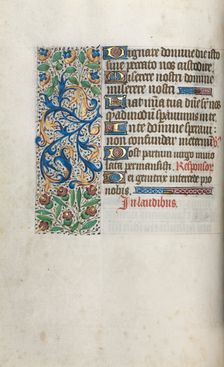 Dignare domine die isto
sine peccato nos custodire
Miserere nostri domine
miserere nostri.
Fiat mĩa tua dñe sup nos
quẽadmodũ speravimus in te
In te domine speravi
non confundar in eternũ
Post partum virgo invio
lata permansisti. Responsor
Dei genitrix intercede pro
nobis.
In laudibus.